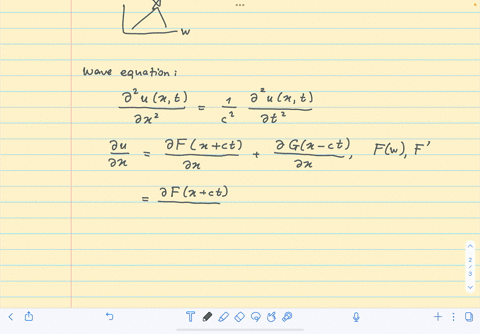 w
Wave equation:
∂²u(x,t)/∂x² = 1/c² ∂²u(x,t)/∂t²
∂u/∂x = ∂F(x+ct)/∂x + ∂G(x-ct)/∂x, F(w), F'
= ∂F(x+ct)
2
/
3
T